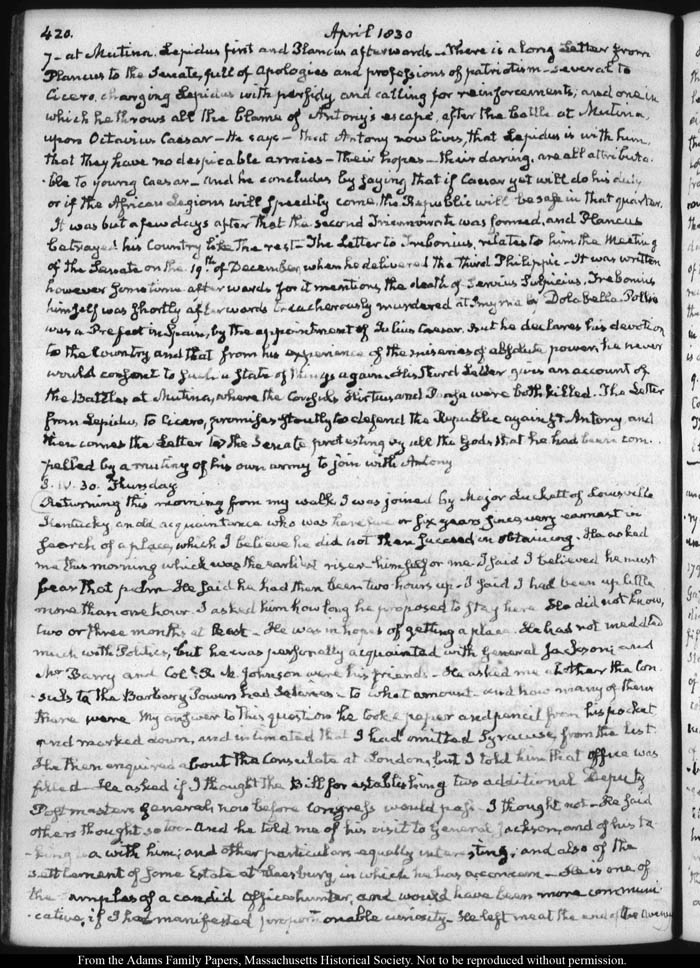 420. April 1830
7- at Mutina. Lepidus first and Plancus afterwards - There is a long Letter from
Plancus to the Senate, full of Apologies and professions of patriotism - several to
Cicero, charging Lepidus with perfidy and calling for reinforcements; and one in
which he throws all the blame of Antony's escape, after the battle at Mutina,
upon Octavius Caesar - He says - that Antony now lives, that Lepidus is with him,
that they have no despicable armies - their hopes - their daring, are all attributa-
-ble to young Caesar - and he concludes by saying that if Caesar yet will do his duty
or if the African Legions will speedily come, the Republic will be safe in that quarter.
It was but a few days after that the second Triumvirate was formed, and Plancus
betrayed his Country like the rest - The Letter to Trebonius, relates to him the Meeting
of the Senate on the 19th of December, when he delivered the third Philippic - It was written
however some time afterwards for it mentions the death of Servius Sulpicius. Trebonius
himself was shortly afterwards treacherously murdered at Smyrna by Dolabella. Pollio
was a Prefect in Spain, by the appointment of Julius Caesar. But he declares his devotion
to the Country and that from his experience of the miseries of absolute power, he never
would consent to such a state of things again. His third Letter gives an account of
the Battles at Mutina, where the Consuls Hirtius and Pansa were both killed. The Letter
from Lepidus, to Cicero, promises stoutly to defend the Republic against Antony, and
then comes the Letter to the Senate protesting by all the Gods, that he had been com-
-pelled by a mutiny of his own army to join with Antony
IV. 30. Thursday
Returning this morning from my walk I was joined by Major Luckett of Louisville
Kentucky an old acquaintance who was here five or six years since, very earnest in
search of a place, which I believe he did not then succeed in obtaining. He asked
me this morning which was the earliest riser himself or me. I said I believed he must
bear that palm - He said he had then been two hours up - I said I had been up little
more than one hour. I asked him how long he proposed to stay here He did not know,
two or three months at least - He was in hopes of getting a place. He has not meddled
much with Politics, but he was personally acquainted with General Jackson; and
Mr Barry and Coll. R. M. Johnson were his friends - He asked me whether the Con-
-suls to the Barbary Powers had Salaries - to what amount - and how many of them
there were My answer to this question he took a paper and pencil from his pocket
and marked down, and intimated that I had omitted Syracuse, from the list
He then enquired about the Consulate at London; but I told him that office was
filled - He asked if I thought the Bill for establishing two additional Deputy
Postmasters General, now before Congress would pass - I thought not - He said
others thought so too - And he told me of his visit to General Jackson, and of his ta-
-king tea with him; and other particulars equally interesting; and also of the
settlement of some Estate at Leesburg, in which he has a concern - He is one of
the samples of a candid Office hunter, and would have been more communi-
-cative, if I had manifested proportionable curiosity - He left me at the end of the Avenue
From the Adams Family Papers, Massachusetts Historical Society. Not to be reproduced without permission.